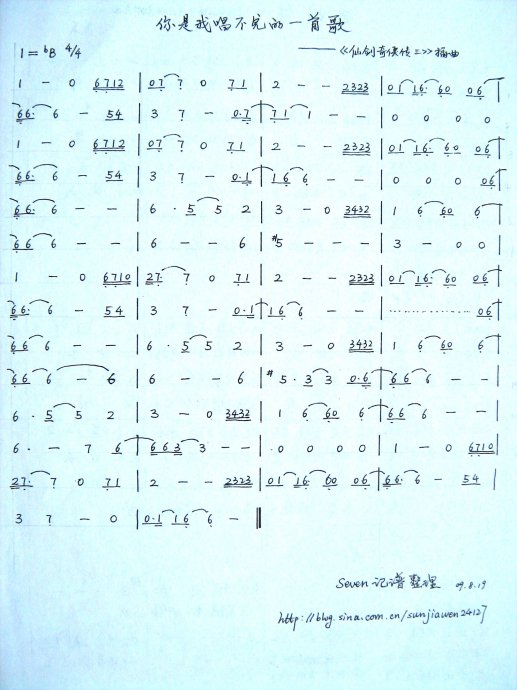 你是我唱不完的一首歌
1=ᵇB 4/4 ——《仙剑奇侠传三》插曲
1 - 0 6712 | 07 7 0 71 | 2 - - 2323 | 01 16· 60 06 |
66· 6 - 54 | 3 7 - 0·7 | 71 1 - - | 0 0 0 0
1 - 0 6712 | 07 7 0 71 | 2 - - 2323 | 01 16· 60 06 |
66· 6 - 54 | 3 7 - 0·1 | 16 6 - - | 0 0 0 06 |
66· 6 - - | 6 · 5 5 2 | 3 - 0 3432 | 1 6 60 6 |
66 6 - - | 6 - - 6 | #5 - - - | 3 - 0 0 |
1 - 0 6710 | 27· 7 0 71 | 2 - - 2323 | 01 16· 60 06 |
66· 6 - 54 | 3 7 - 0·1 | 16 6 - - | ················ 06 |
66 6 - - | 6 · 5 5 2 | 3 - 0 3432 | 1 6 60 6 |
66 6 - 6 | 6 - - 6 | #5 · 3 3 0·6 | 66 6 - - |
6 · 5 5 2 | 3 - 0 3432 | 1 6 60 6 | 66 6 - - |
6 · - 7 6 | 663 3 - - | 0 0 0 0 | 1 - 0 6710 |
27· 7 0 71 | 2 - - 2323 | 01 16· 60 06 | 66· 6 - 54 |
3 7 - 0 | 0·1 16 6 - ‖
Seven 记谱整理 09.8.19
http://blog.sina.com.cn/sunjiawen24127